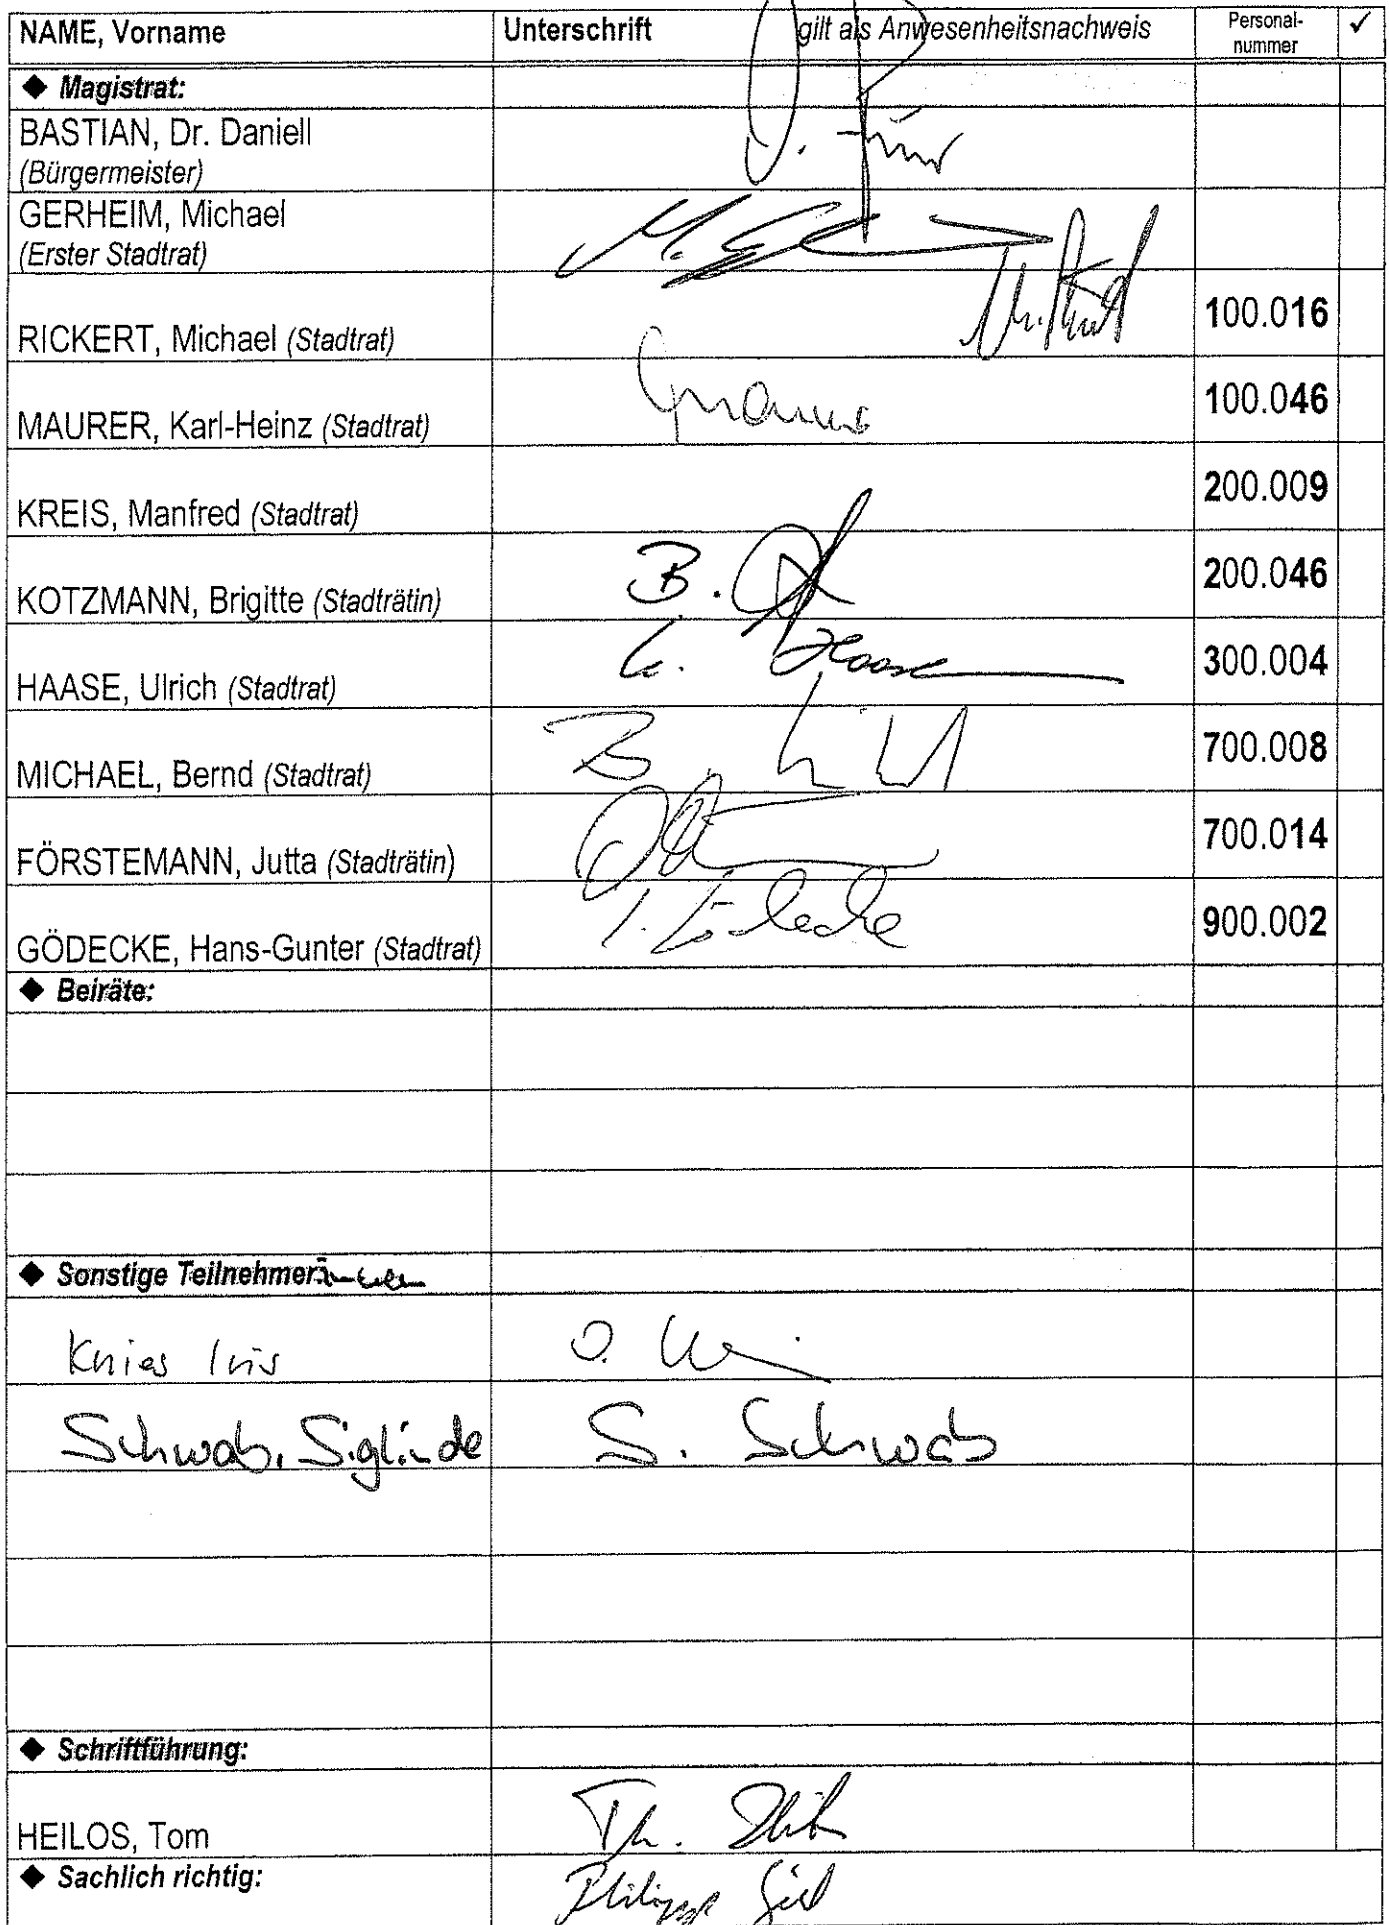 NAME, Vorname Unterschrift gilt als Anwesenheitsnachweis Personal-nummer ✓
◆ Magistrat:
BASTIAN, Dr. Daniell
(Bürgermeister)
GERHEIM, Michael
(Erster Stadtrat)
RICKERT, Michael (Stadtrat) 100.016
MAURER, Karl-Heinz (Stadtrat) 100.046
KREIS, Manfred (Stadtrat) 200.009
KOTZMANN, Brigitte (Stadträtin) B. 200.046
HAASE, Ulrich (Stadtrat) Haase 300.004
MICHAEL, Bernd (Stadtrat) B 700.008
FÖRSTEMANN, Jutta (Stadträtin) 700.014
GÖDECKE, Hans-Gunter (Stadtrat) Gödecke 900.002
◆ Beiräte:
◆ Sonstige Teilnehmer:innen
Knies Iris
Schwab, Siglinde S. Schwab
◆ Schriftführung:
HEILOS, Tom Th.
◆ Sachlich richtig: Philipp